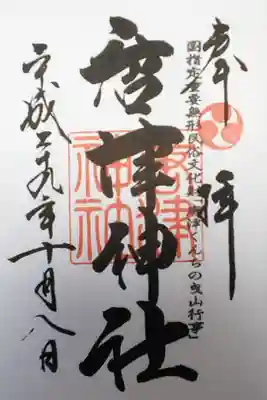 奉拝
國指定重要無形民俗文化財「唐津くんちの曳山行事」
唐津神社
唐津神社
平成二十九年十月八日